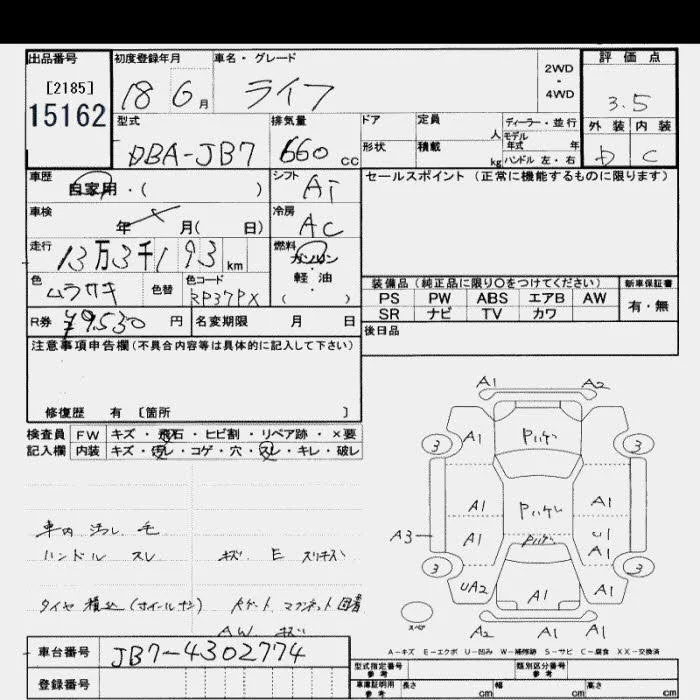 出品番号 初度登録年月 車名・グレード 2WD・4WD 評価点
[2185]
15162
18 6月 ライフ 3.5
型式 排気量 ドア 定員 人 ディーラー・並行 外装 内装
DBA-JB7 660cc 形状 積載 kg モデル年式 年 ハンドル 左・右 D C
車歴 自家用・( ) シフト AT セールスポイント (正常に機能するものに限ります)
車検 年 月( 日) 冷房 AC
走行 13万3千193km 燃料 ガソリン・軽油・( )
色 ムラサキ 色替 色コード RP37PX
装備品 (純正品に限り〇をつけてください) 新車保証書
PS PW ABS エアB AW 有・無
SR ナビ TV カワ
R券 ¥9530円 名変期限 月 日 後日品
注意事項申告欄(不具合内容等は具体的に記入して下さい)
修復歴 有 [箇所 ]
検査員記入欄 FW キズ・飛石・ヒビ割・リペア跡・×要
内装 キズ・汚レ・コゲ・穴・スレ・キレ・破レ
A1 A2
3 A1 Pハゲ 3
A1 Pハゲ A1
A3 A1 Pハゲ U1 A1
3 3
UA2 A1 A1
スペア A2 A1 A1
車内 汚レ 毛
ハンドル スレ キズ E スリキズ
タイヤ 積込 (ホイールナシ) Rゲート マグネット
AW キズ
A-キズ E-エクボ U-凹み W-補修跡 S-サビ C-腐食 XX-交換済
車台番号 JB7-4302774
登録番号
型式指定番号 参考 類別区分番号 参考
車庫証明用 参考 長さ cm 幅 cm 高さ cm